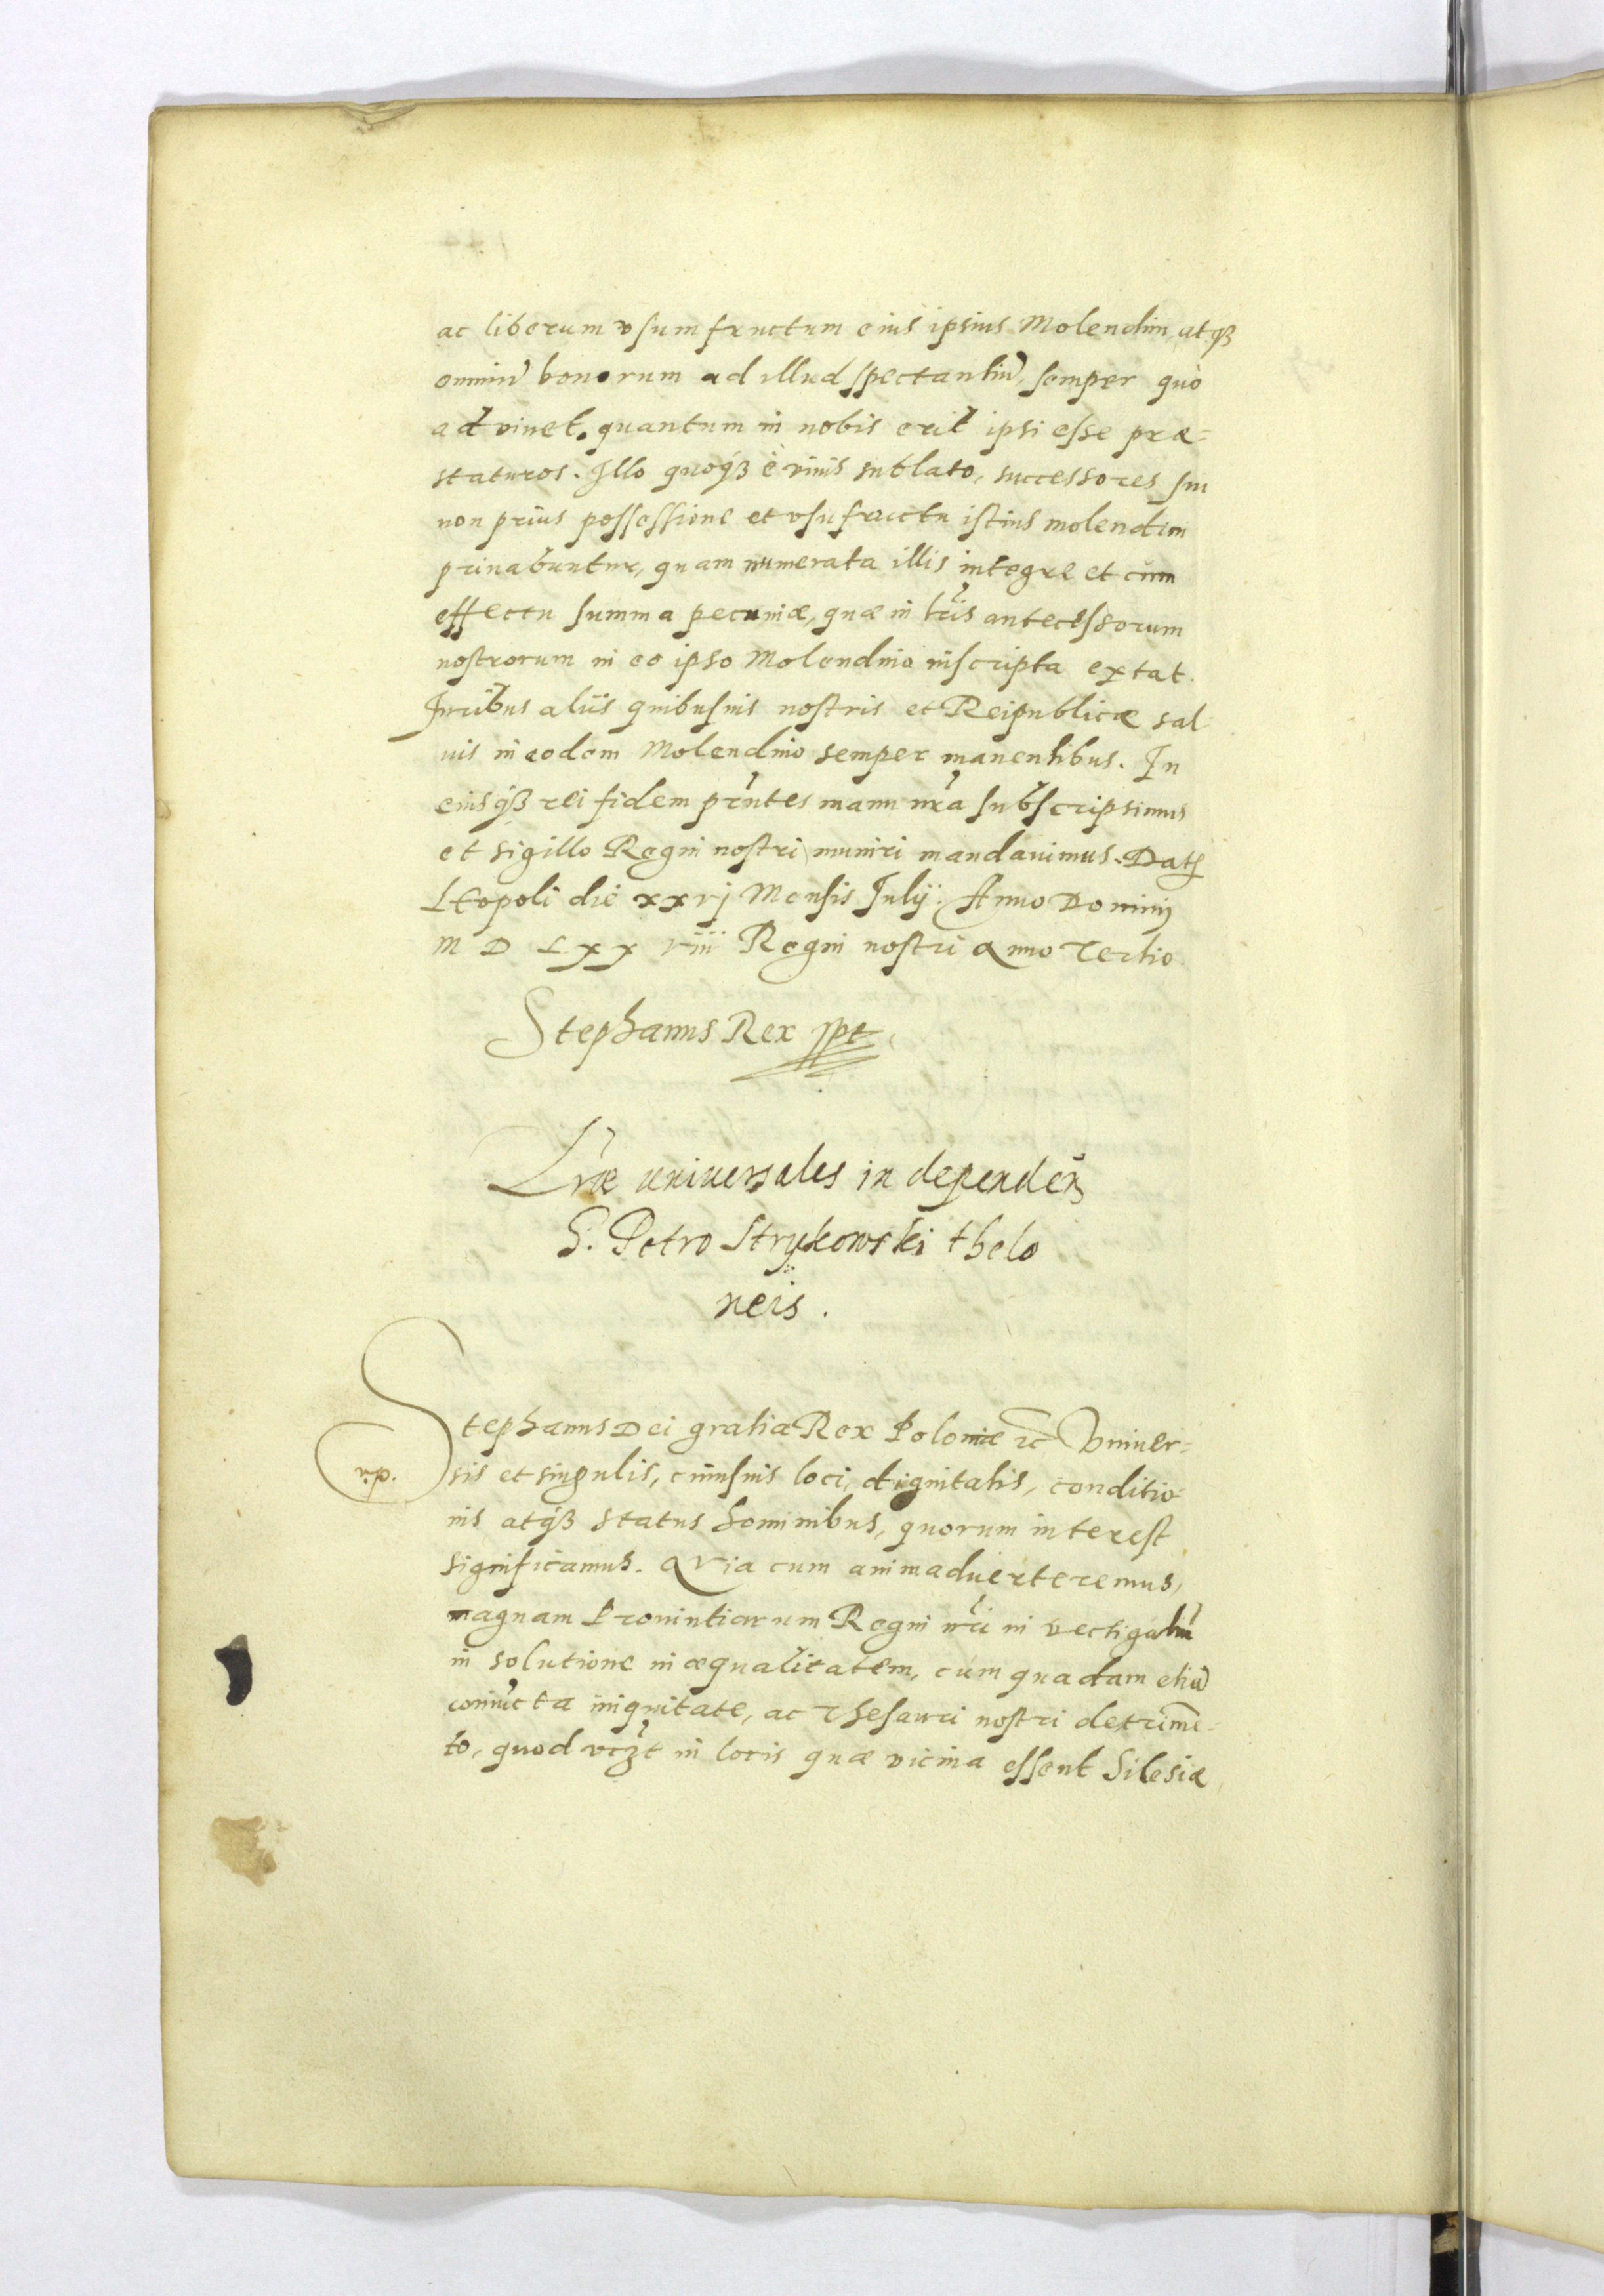 ac liberum vsumfructum eius ipsius Molendini, atqꝫ
omniũ bonorum ad illud spectantiũ, semper quò
ad viuet, quantum in nobis erit ipsi esse præ-
staturos. Illo quoqꝫ è viuis sublato, successores sui
non prius possessione et vsufructu istius molendini
priuabuntur, quam numerata illis integre et cum
effectu summa pecuniæ, quæ in lr̃is antecessorum
nostrorum in eo ipso Molendino inscripta extat.
Iuribus aliis quibusuis nostris et Reipublicæ sal
uis in eodem Molendino semper manentibus. In
eiusqꝫ rei fidem pr̃ntes manu nr̃a subscripsimus
et sigillo Regni nostri muniri mandauimus. Datꝫ
Leopoli die xxvj Mensis Julÿ. Anno Dominj
M D L x x viii Regni nostri Anno Tertio.
Stephanus Rex sspt
Lr̃æ uniuersales in dependen̄
G. Petro Strykowski thelo
neis.
Stephanus Dei gratia Rex Poloniæ ꝛc Vniuer-
v.p. sis et singulis, cuiusuis loci, dignitatis, conditio
nis atqꝫ status hominibus, quorum interest
significamus. Quia cum animaduerteremus,
magnam Prouintiarum Regni nr̃i in vectigaliũ
in solutione inæqualitatem, cum quadam etiã
coniũcta iniquitate, ac Thesauri nostri detrimẽ-
to, quod vcꝫt in locis quæ vicina essent Silesiæ,